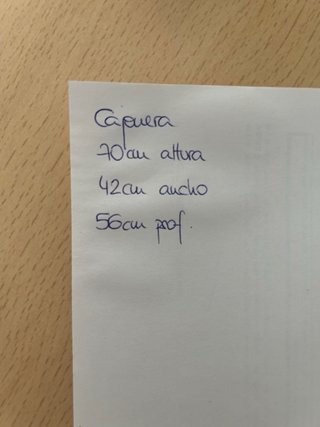 Cajonera
70cm altura
42cm ancho
56cm prof.